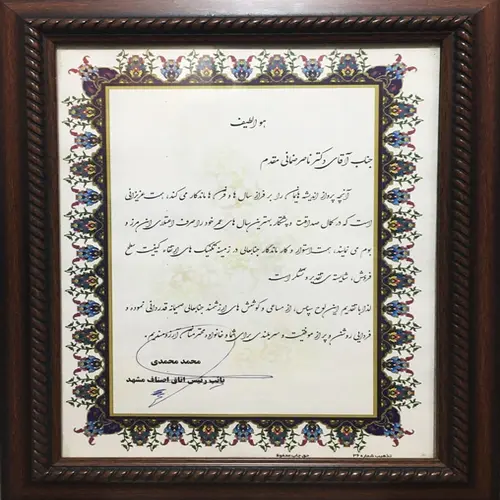 هو اللطیف
جناب آقای دکتر ناصر ضمانی مقدم
آنچه پرواز اندیشه هایمان را بر فراز سال ها و قرن ها ماندگار می کند، همت عزیزانی
است که در کمال صداقت و پشتکار بهترین سال های عمر خود را صرف اعتلای این مرز و
بوم می نمایند، همت استوار و کار ماندگار جنابعالی در زمینه تکنیک های ارتقاء کیفیت سطح
فروش، شایسته ی تقدیر و تشکر است
لذا با تقدیم این لوح سپاس، از مساعی و کوشش های ارزشمند جنابعالی صمیمانه قدردانی نموده و
فردایی روشن و پر از موفقیت و سربلندی برای شما و خانواده محترمتان آرزومندیم.
محمد محمدی
نائب رئیس اتاق اصناف مشهد
تذهیب شماره ۳۶ حق چاپ محفوظ